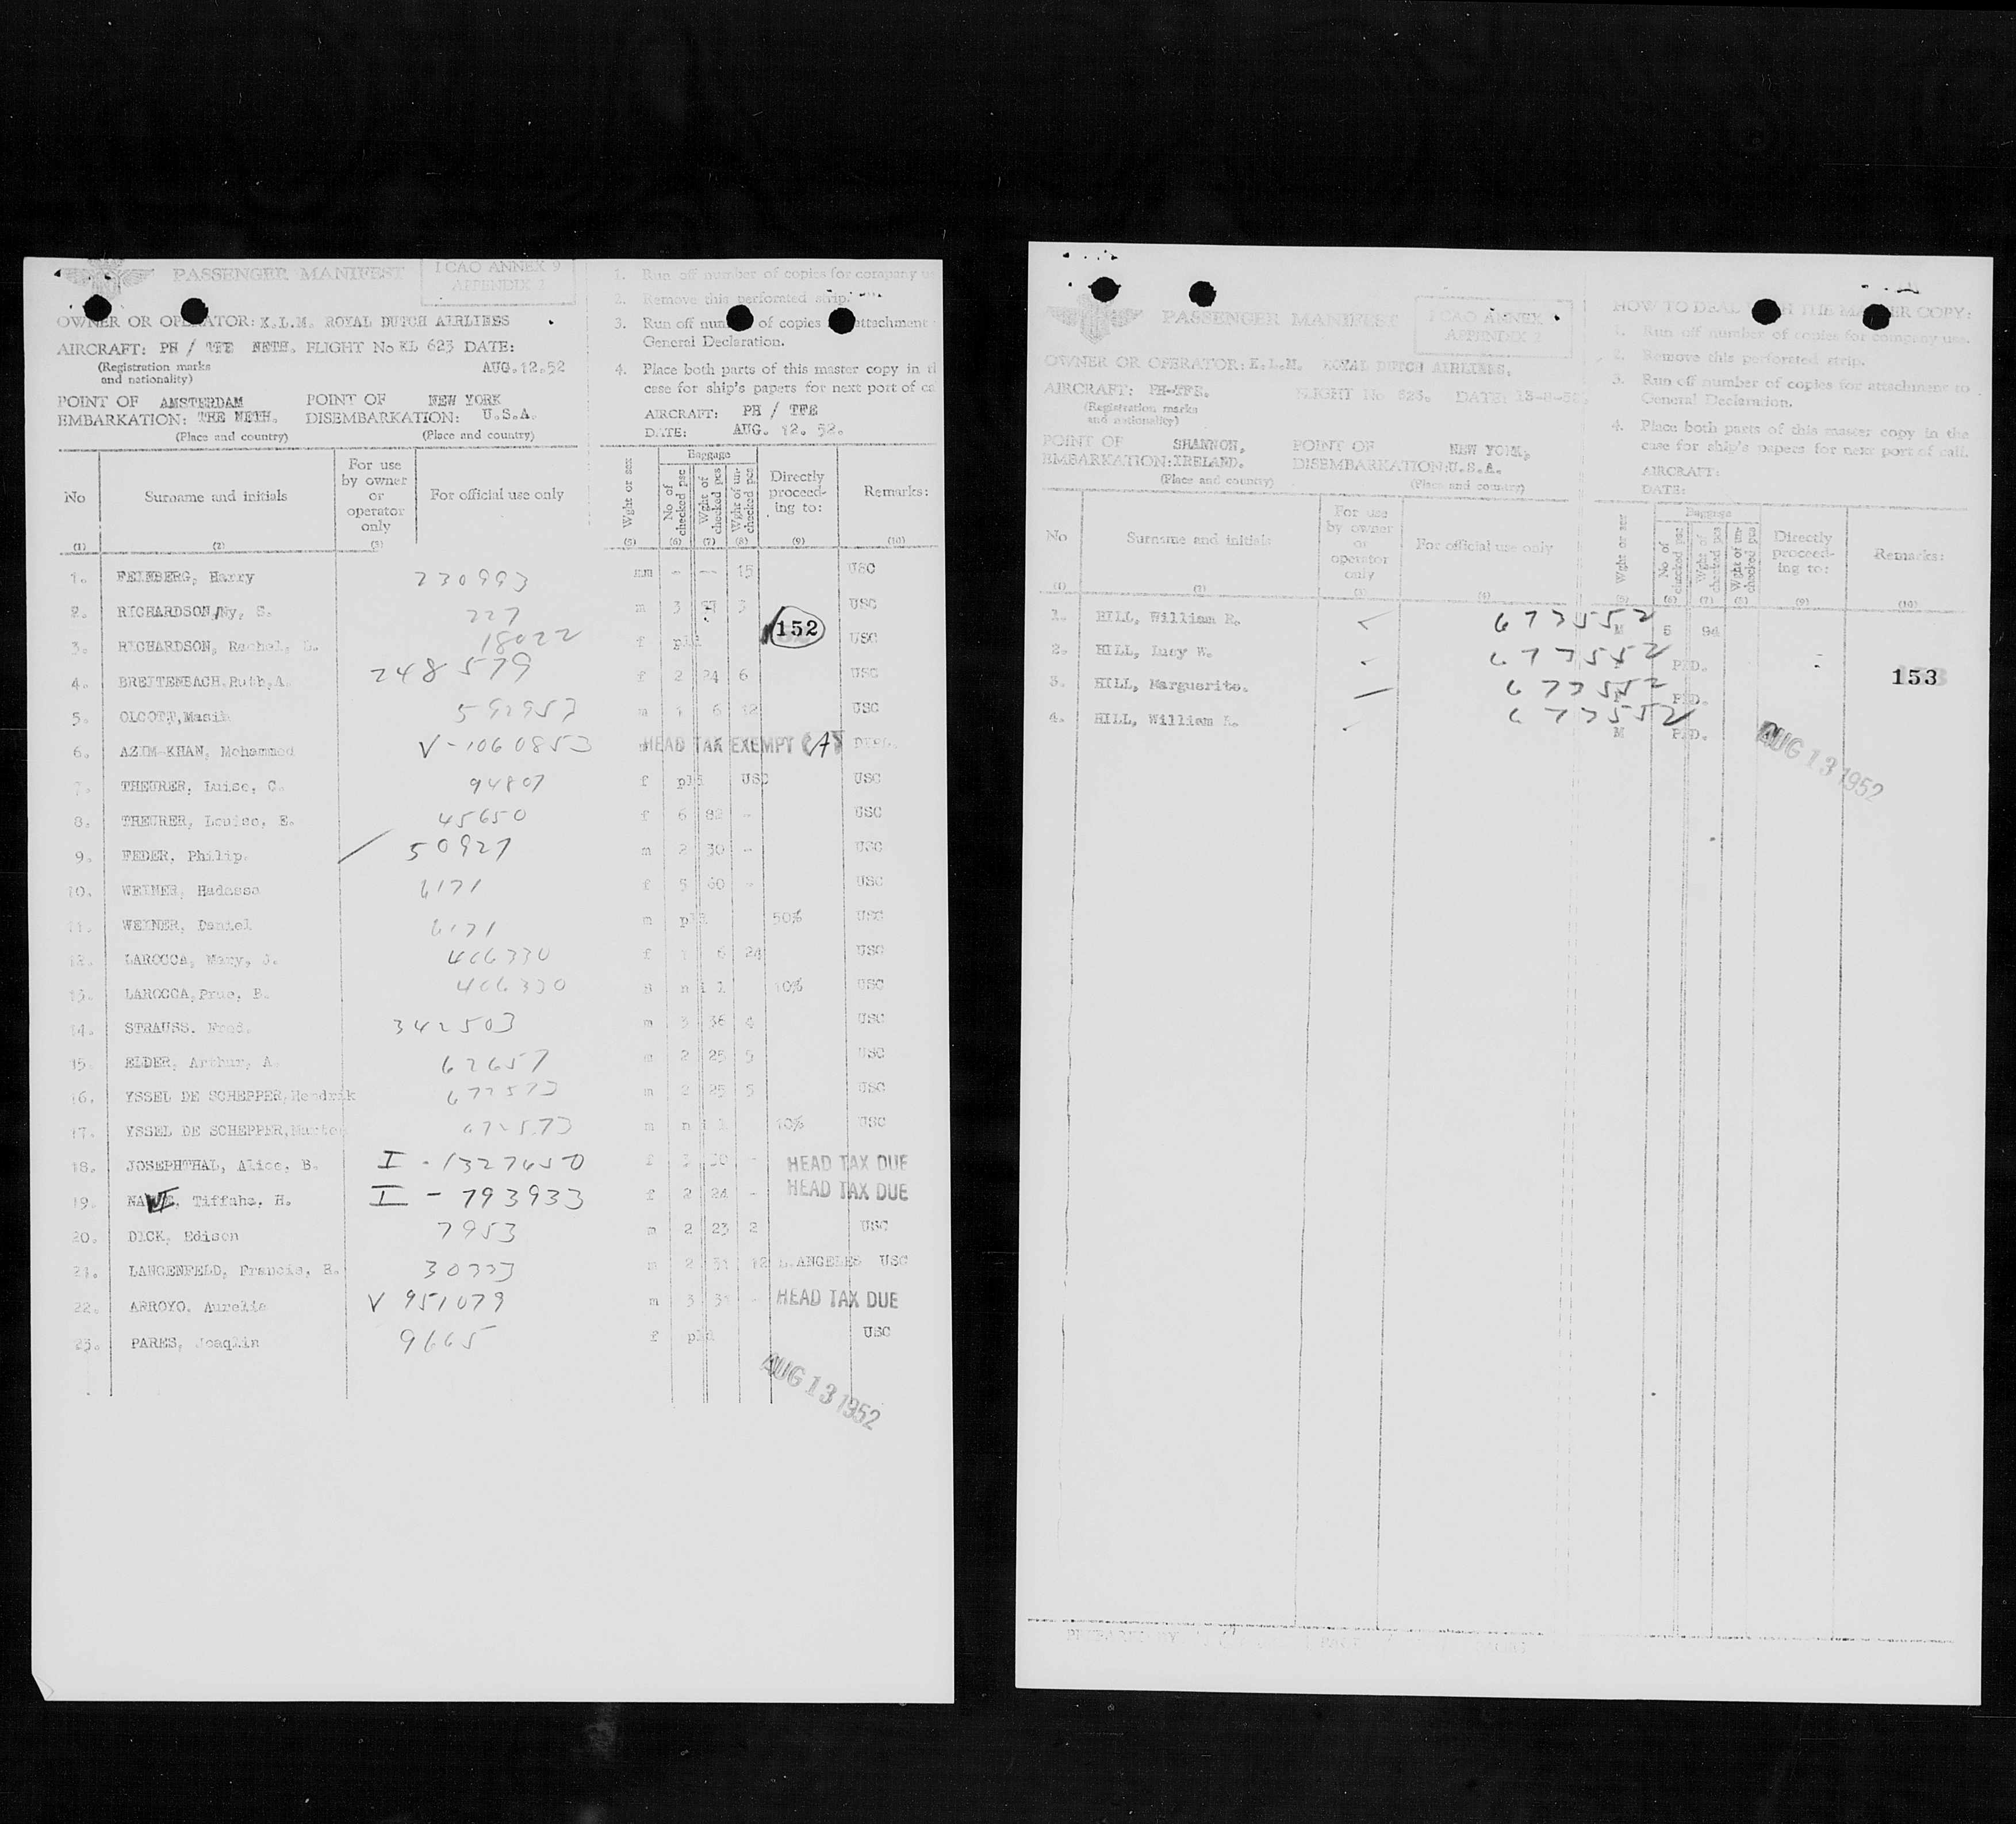 PASSENGER MANIFEST
ICAO ANNEX 9
APPENDIX 2
OWNER OR OPERATOR: K.L.M. ROYAL DUTCH AIRLINES
AIRCRAFT: PH / TFE NETH. FLIGHT No KL 623 DATE:
(Registration marks and nationality)
AUG.12.52
POINT OF EMBARKATION: AMSTERDAM THE NETH.
POINT OF DISEMBARKATION: NEW YORK U.S.A.
(Place and country) (Place and country)
1. Run off number of copies for company
2. Remove this perforated strip.
3. Run off of copies attachment
General Declaration.
4. Place both parts of this master copy in
case for ship's papers for next port of
AIRCRAFT: PH / TFE
DATE: AUG. 12. 52.
No
Surname and initials
For use by owner or operator only
For official use only
Wght or sex
Baggage
No of checked psc
Wght of checked pcs
Wght of un-checked pcs
Directly proceed-ing to:
Remarks:
(1) (2) (3) (5) (6) (7) (8) (9) (10)
1. FEINBERG, Harry 230993 - -- 15 USC
2. RICHARDSON, Ny, S. 227 m 3 USC
152
3. RICHARDSON, Rachel, L. 18022 f USC
4. BREITENBACH, Ruth, A. 248579 f 2 24 6 USC
5. OLCOTT, 592953 m 1 6 12 USC
6. AZIM-KHAN, Mohammed V-1060853 HEAD TAX EXEMPT (A)
7. THEURER, Luise, C. 94807 f USC USC
8. THEURER, Louise, E. 45650 f 6 82 - USC
9. FEDER, Philip. 50927 m 2 30 - USC
10. WEINER, Hadassa 6171 f 5 60 - USC
11. WEINER, Daniel 6171 m 50% USC
12. LAROCCA, Mary, J. 466330 f 1 6 24 USC
13. LAROCCA, B. 466330 10% USC
14. STRAUSS. Fred. 342503 m 3 36 4 USC
15. ELDER, Arthur, A. 62657 m 2 25 5 USC
16. YSSEL DE SCHEPPER, Hendrik 677573 m 2 25 5 USC
17. YSSEL DE SCHEPPER, m 10% USC
18. JOSEPHTHAL, Alice, B. I - 1327450 f HEAD TAX DUE
19. Tiffaha, H. I - 793933 f 2 24 - HEAD TAX DUE
20. DICK, Edison 7953 m 2 23 2 USC
21. LANGENFELD, Francis, H. 30333 m 2 31 12 L.ANGELES USC
22. ARROYO, Aurelio V 951079 m 3 31 - HEAD TAX DUE
23. PARES, Joaquin 9665 f USC
AUG 13 1952
PASSENGER MANIFEST
ICAO ANNEX
APPENDIX 2
OWNER OR OPERATOR: K.L.M. ROYAL DUTCH AIRLINES.
AIRCRAFT: PH-TFE. FLIGHT No 623. DATE:
(Registration marks and nationality)
POINT OF EMBARKATION: SHANNON, IRELAND.
POINT OF DISEMBARKATION: NEW YORK, U.S.A.
(Place and country) (Place and country)
HOW TO DEAL WITH THE MASTER COPY:
1. Run off number of copies for company use.
2. Remove this perforated strip.
3. Run off number of copies for attachment to
General Declaration.
4. Place both parts of this master copy in the
case for ship's papers for next port of call.
AIRCRAFT:
DATE:
No
Surname and initials
For use by owner or operator only
For official use only
Wght or sex
Baggage
No of checked psc
Wght of checked pcs
Wght of un-checked pcs
Directly proceed-ing to:
Remarks:
(1) (2) (3) (4) (5) (6) (7) (8) (9) (10)
1. HILL, William R. 673552 M 5 94
2. HILL, Lucy W. 673552
3. HILL, Marguerite. 673552
153
4. HILL, William 673552 M
AUG 13 1952